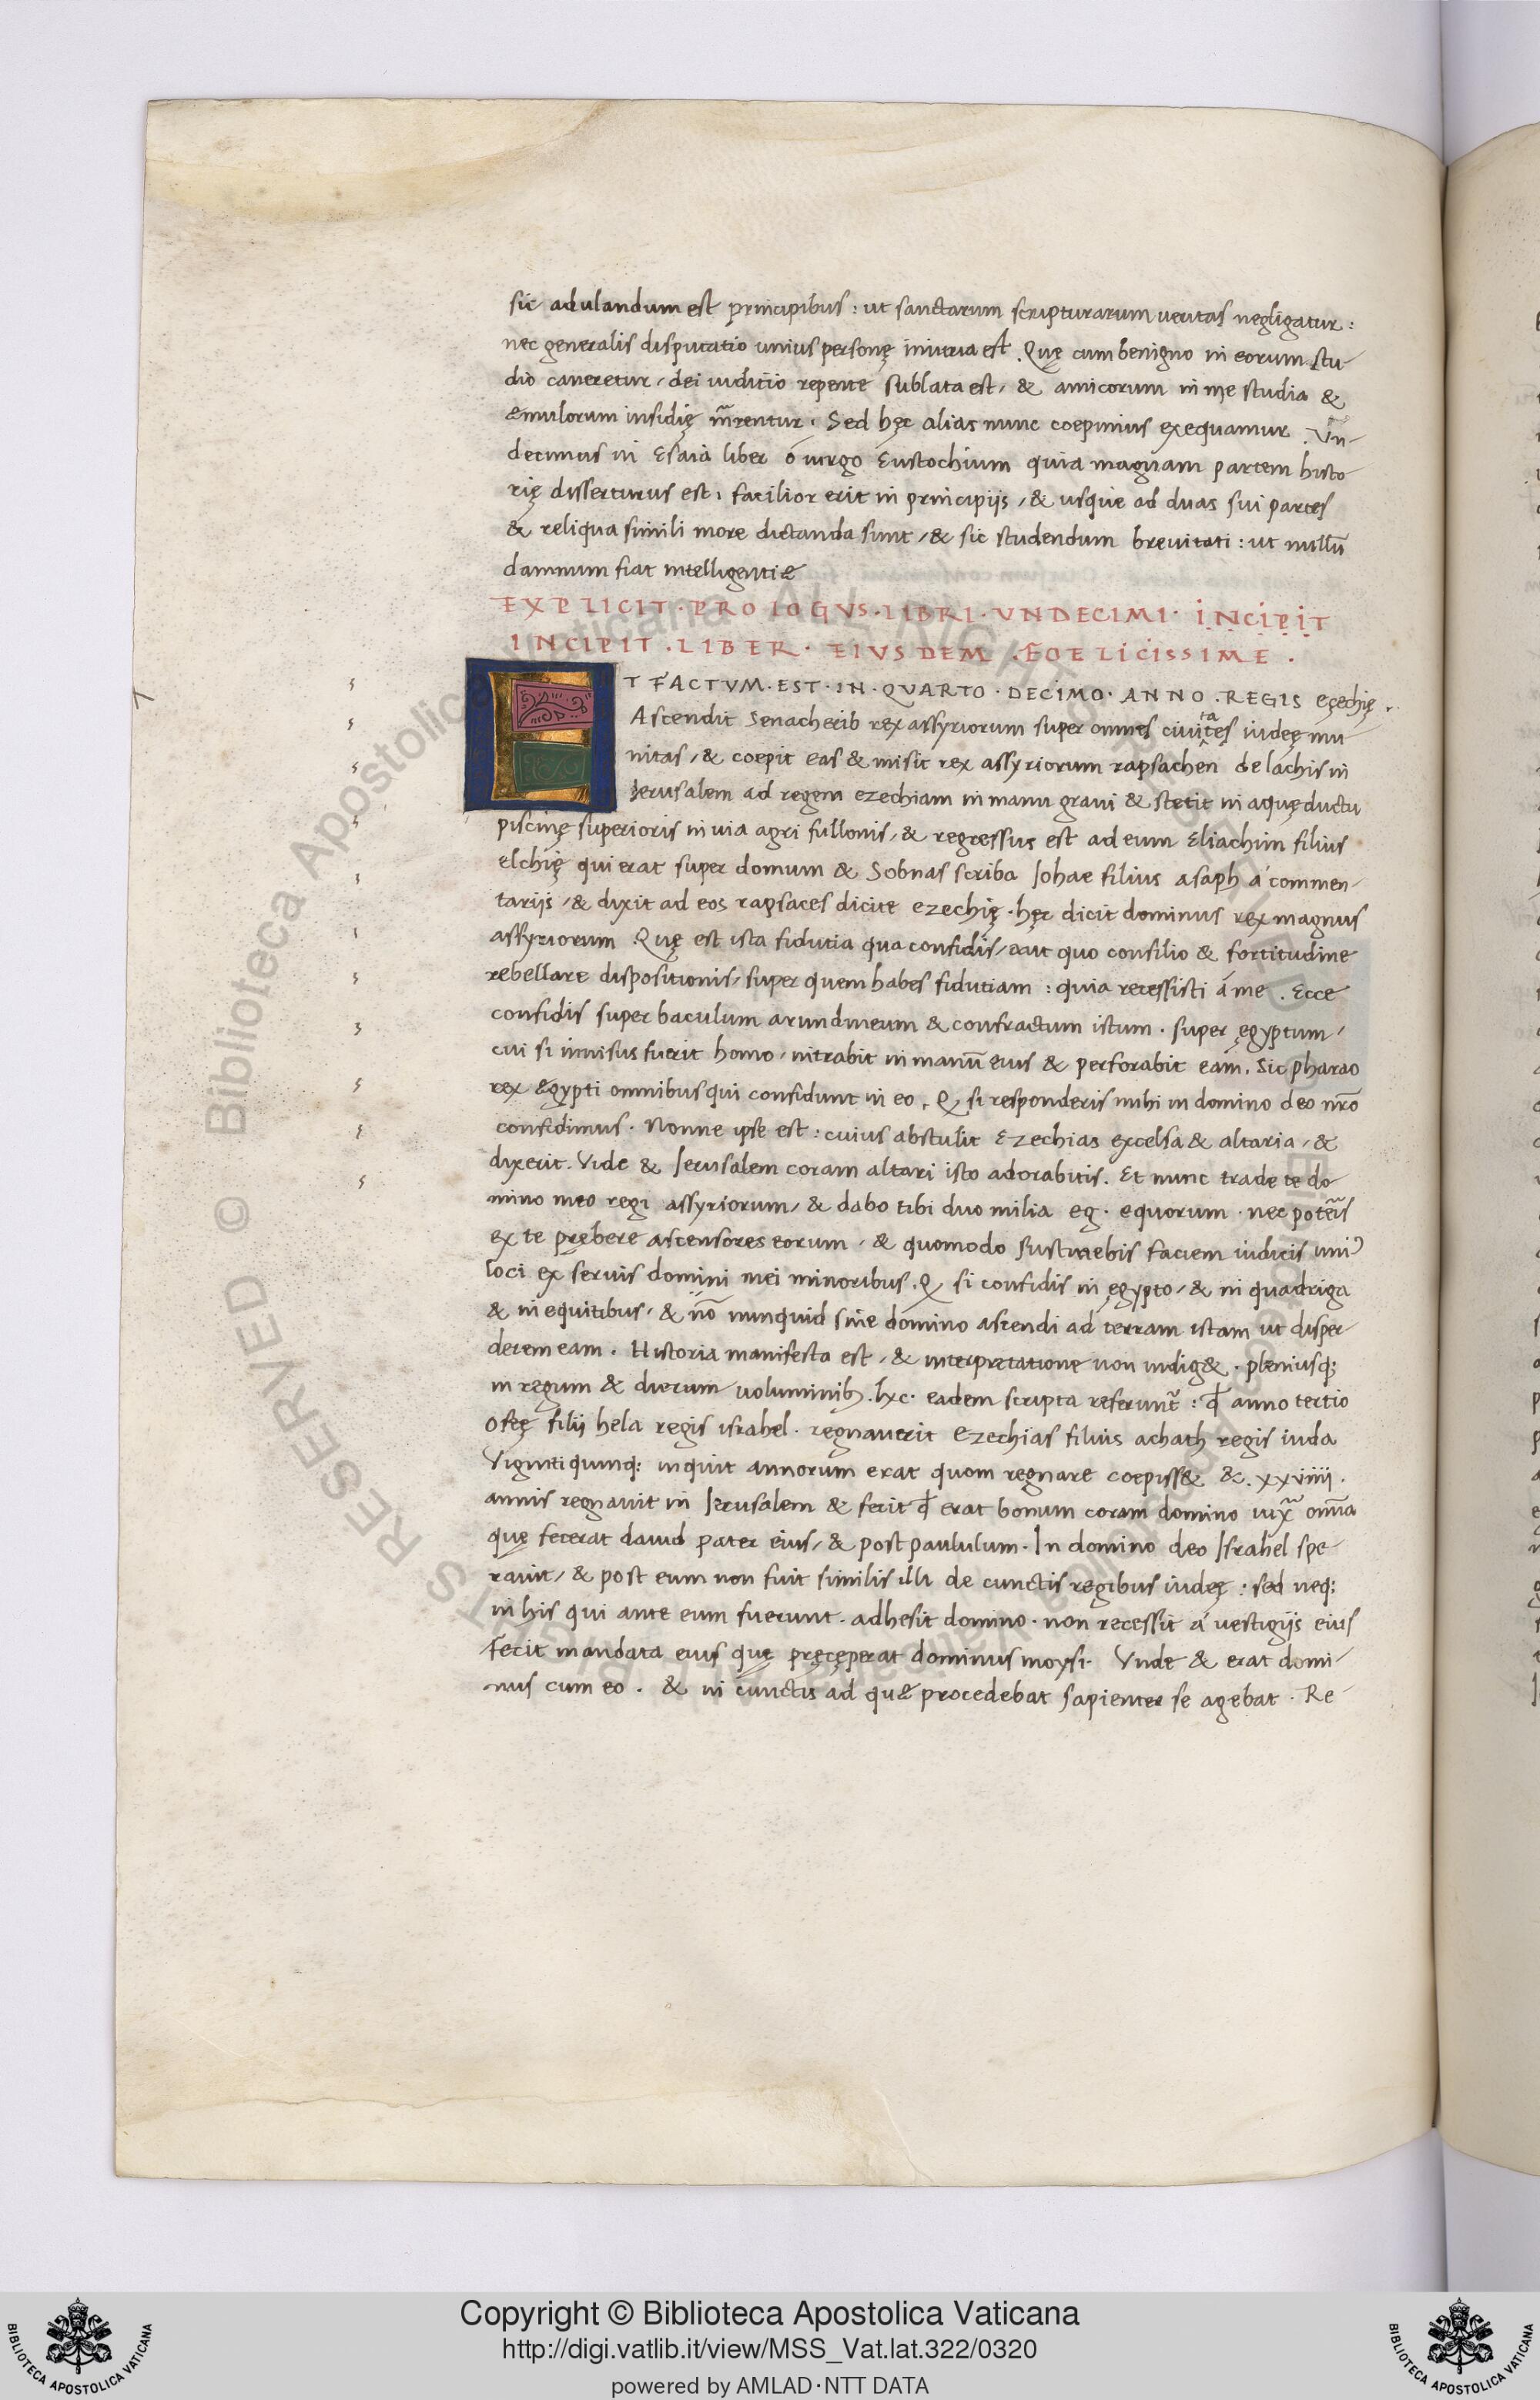 sic adulandum est principibus : ut sanctarum scripturarum veritas negligatur :
nec generalis disputatio unius personę iniuria est . Quę cum benigno in eorum stu-
dio caneretur / dei iuditio repente sublata est / & amicorum in me studia &
emulorum insidię mr̃entur . Sed hęc alias nunc coepimus exequamur . Vn-
decimus in Esaia liber o uirgo Eustochium quia magnam partem histo
rię disserturus est . facilior erit in principijs / & usque ad duas sui partes
& reliqua simili more dictanda sunt / & sic studendum breuitati : ut nullū
damnum fiat intelligentiæ
EXPLICIT . PROLOGVS . LIBRI . VNDECIMI . INCIPIT
INCIPIT . LIBER . EIVSDEM . FOELICISSIME .
ET FACTVM . EST . IN . QVARTO . DECIMO . ANNO . REGIS eçechię .
Ascendit Senacherib rex assyriorum super omnes ciuitates iudeę mu-
nitas / & coepit eas & misit rex assyriorum rapsachen de lachis in
Jerusalem ad regem ezechiam in manu graui & stetit in aquęductu
piscinę superioris in uia agri fullonis / & regressus est ad eum Eliachim filius
elchię qui erat super domum & Sobnas scriba Johae filius asaph á commen-
tarijs / & dixit ad eos rapsaces dicite ezechię . hęc dicit dominus rex magnus
assyriorum . Quę est ista fidutia qua confidis / aut quo consilio & fortitudine
rebellare dispositionis / super quem habes fidutiam : quia recessisti á me . Ecce
confidis super baculum arundineum & confractum istum . super ęgyptum /
cui si innisus fuerit homo / intrabit in manū eius & perforabit eam . Sic pharao
rex Egypti omnibus qui confidunt in eo . Q si responderis mihi in domino deo nr̄o
confidimus . Nonne ipse est : cuius abstulit Ezechias excelsa & altaria / &
dixerit . Vide & Jerusalem coram altari isto adorabitis . Et nunc trade te do
mino meo regi assyriorum / & dabo tibi duo milia eq . equorum . nec poter̃is
ex te prębere ascensores eorum / & quomodo sustinebis faciem iudicis uni᾿
loci ex seruis domini mei minoribus . Q si confidis in ęgypto / & in quadriga
& in equitibus / & nō nunquid sine domino ascendi ad terram istam ut disper
derem eam . Historia manifesta est / & interpretatione non indig& . pleniusq;
in regum & dierum uoluminib; . hęc . eadem scripta referunt̃ : qđ anno tertio
Oseę filij hela regis israhel . regnauerit Ezechias filius achath regis iuda
Viginti quinq; inquit annorum erat quom regnare coepiss& & . xxviiii .
annis regnauit in Jerusalem & fecit qđ erat bonum coram domino iuxã om̃ia
quę fecerat dauid pater eius / & post paululum . In domino deo Israhel spe
rauit / & post eum non fuit similis illi de cunctis regibus iudeę : sed neq;
in his qui ante eum fuerunt . adhesit domino . non recessit á vestigijs eius
Fecit mandata eius quę pręcęperat dominus moysi . Vnde & erat domi-
nus cum eo . & in cunctis ad quæ procedebat sapienter se agebat . Re
Copyright © Biblioteca Apostolica Vaticana
http://digi.vatlib.it/view/MSS_Vat.lat.322/0320
powered by AMLAD·NTT DATA
BIBLIOTECA APOSTOLICA VATICANA
BIBLIOTECA APOSTOLICA VATICANA